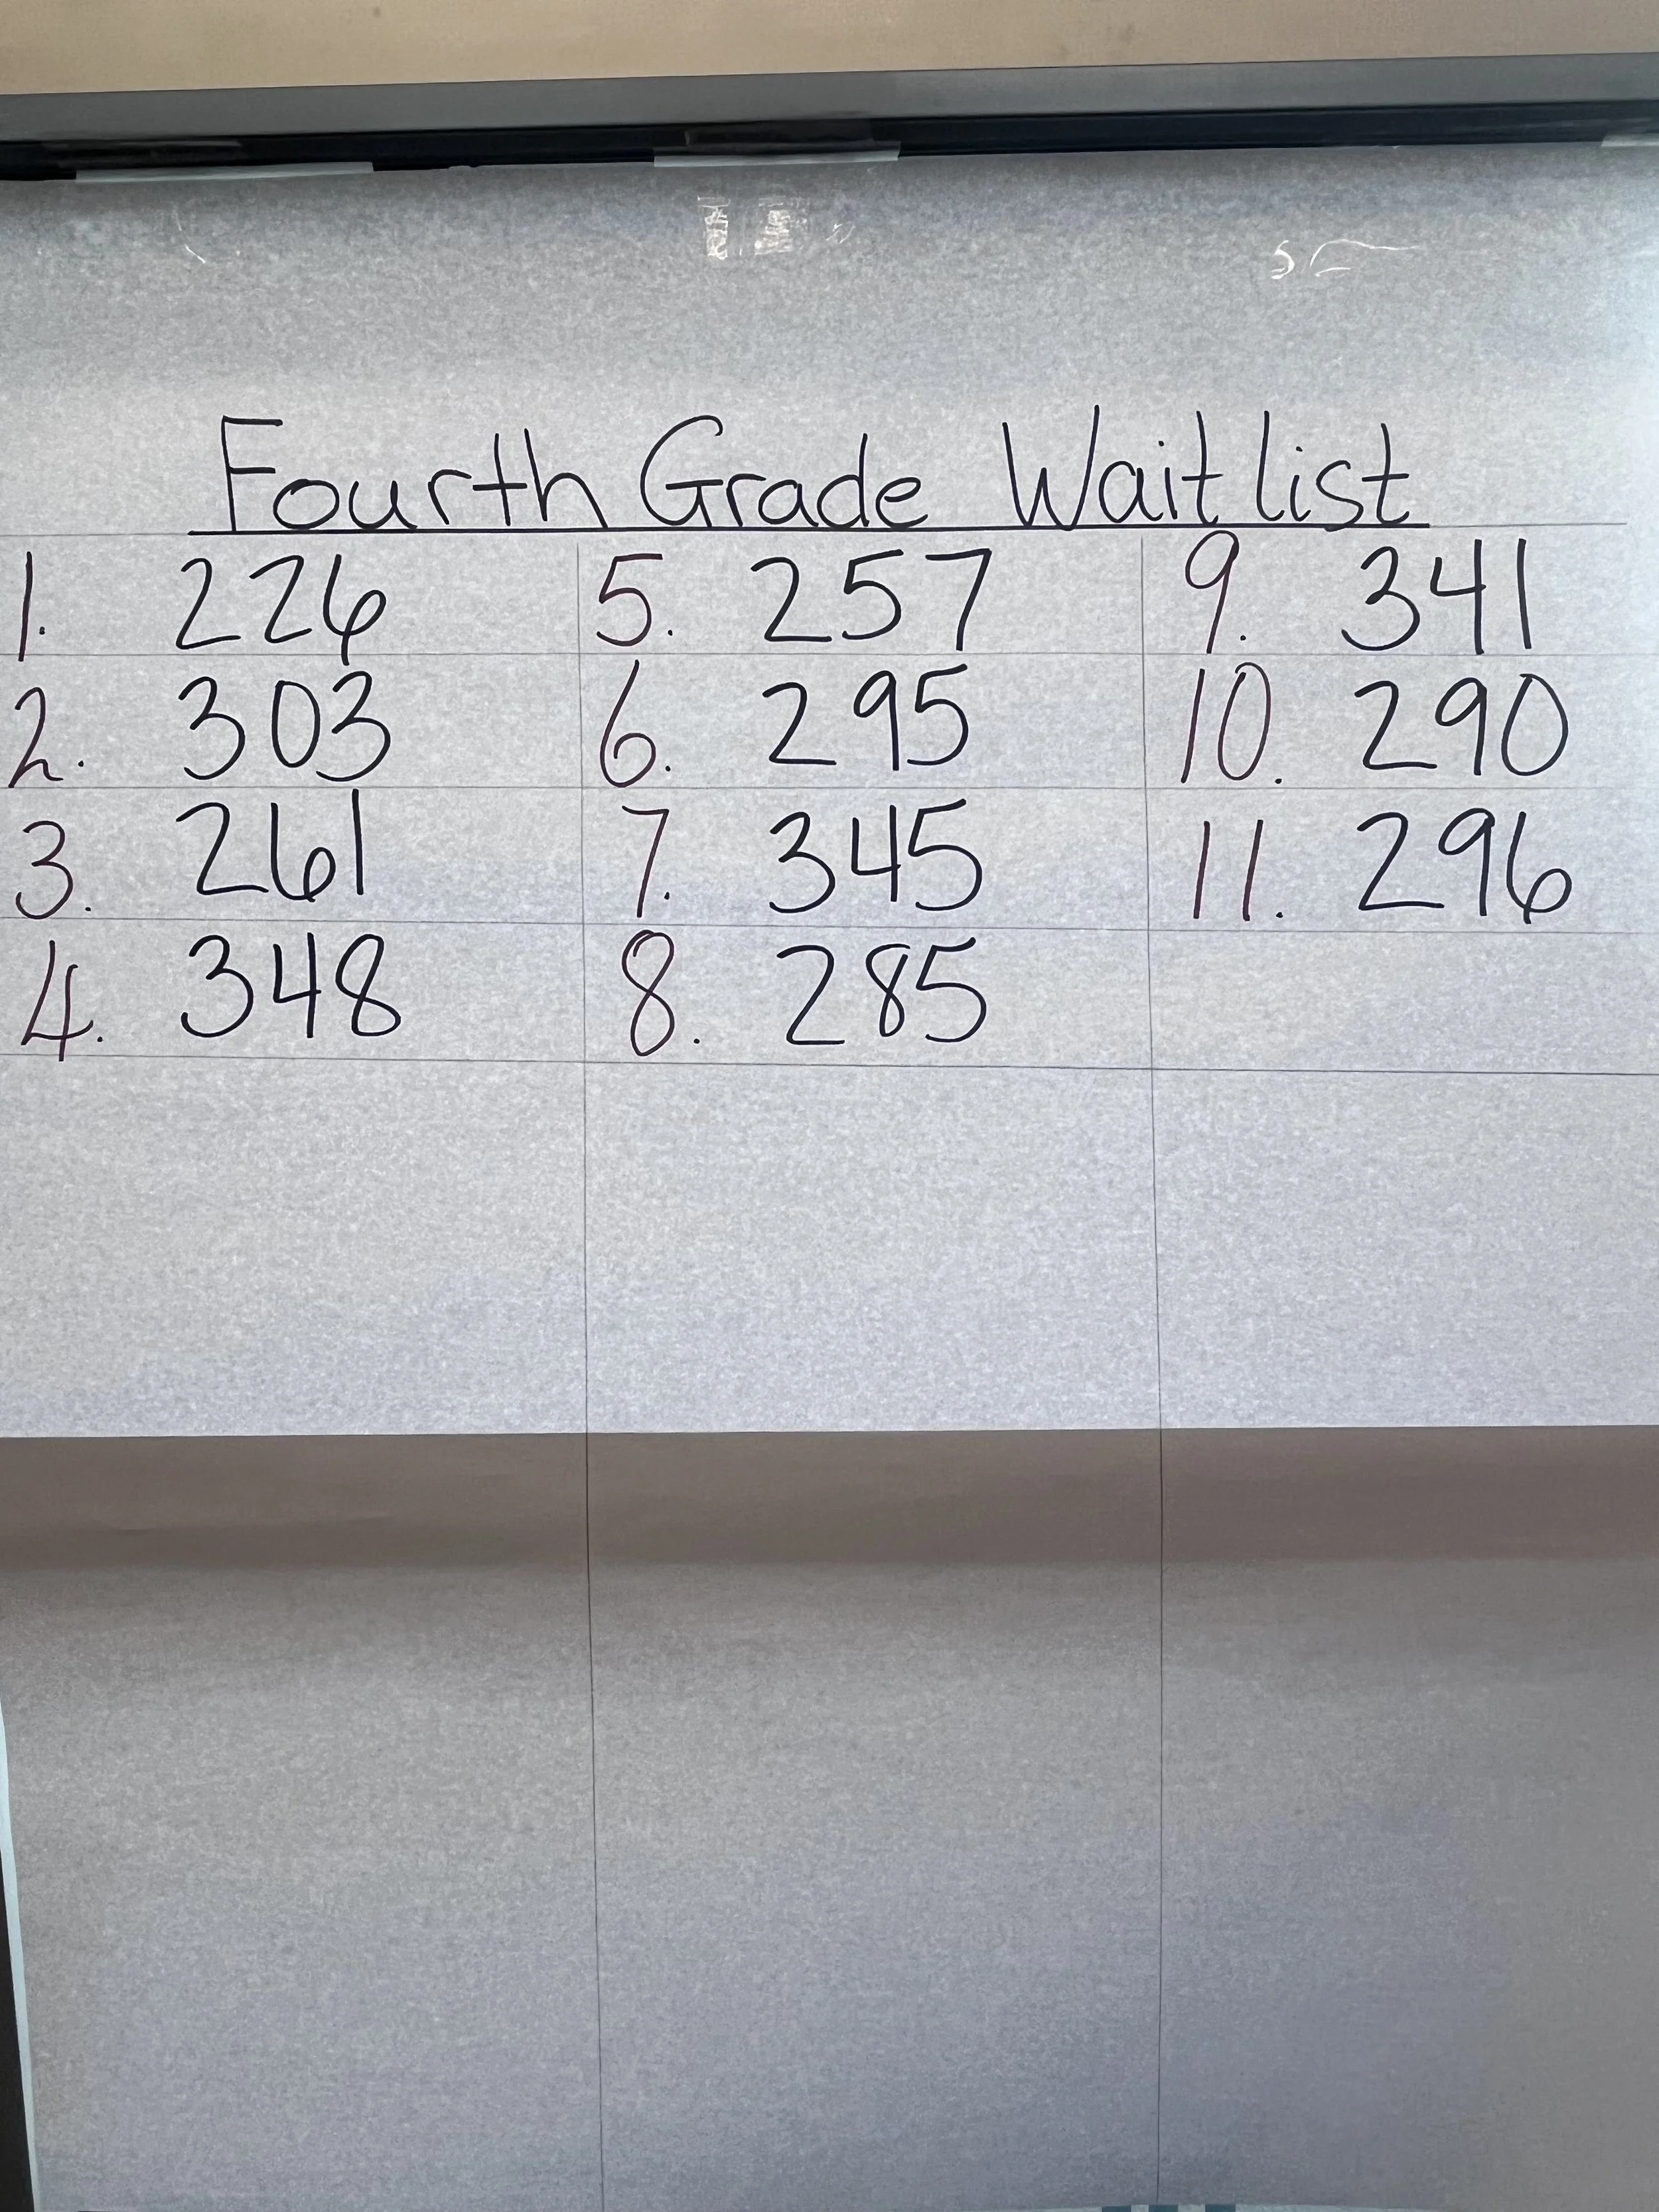 Fourth Grade Waitlist
1. 226
2. 303
3. 261
4. 348
5. 257
6. 295
7. 345
8. 285
9. 341
10. 290
11. 296